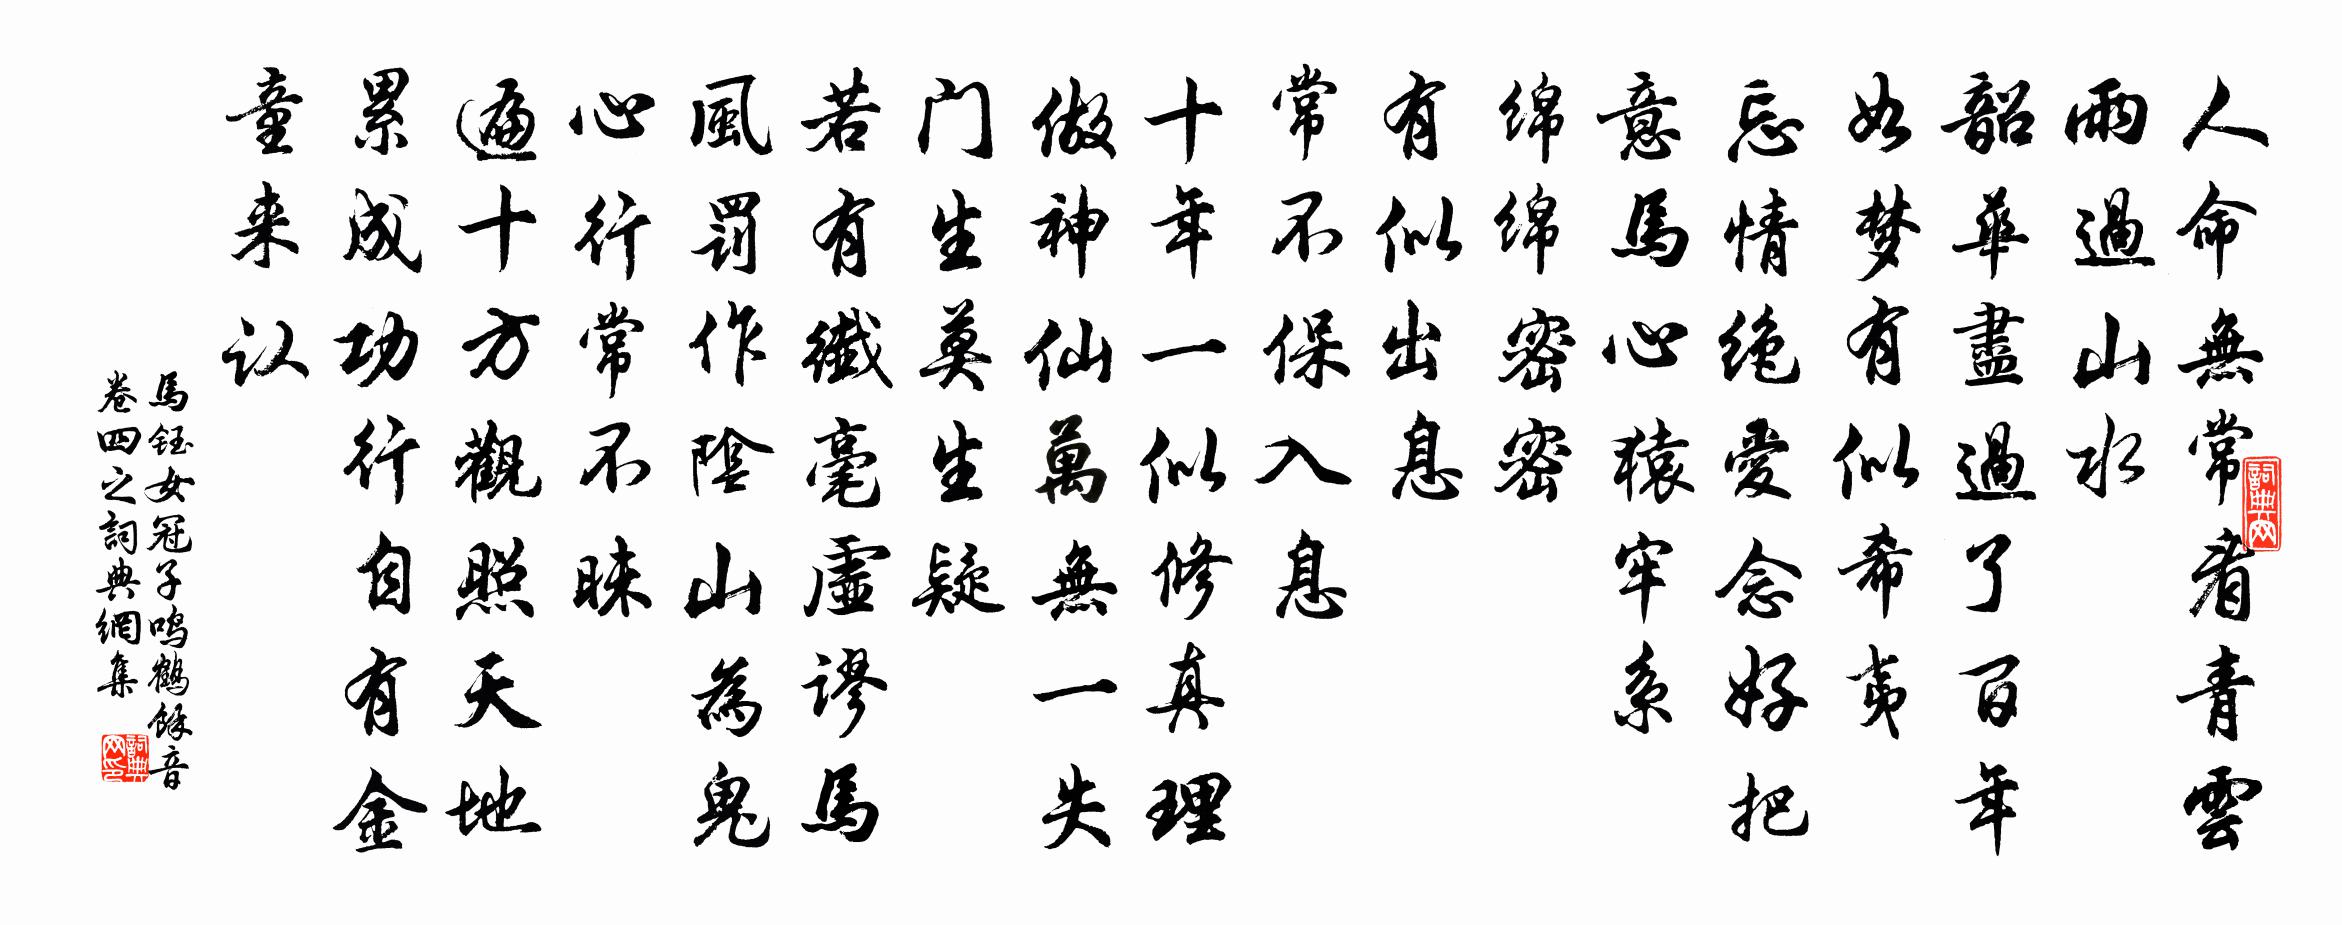 人命無常看青雲
雨過山水
韶華盡過了百年
如梦有似希夷
忘情绝愛念好把
意馬心猿牢系
绵绵密密
有似出息
常不保入息
十年一似修真理
做神仙萬無一失
门生莫生疑
若有纖毫虛谬馬
風罰作陰山為鬼
心行常不昧
遍十方觀照天地
累成功行自有金
童来认
馬钰女冠子鸣鶴餘音
卷四之詞典網集
詞典网
詞典网印